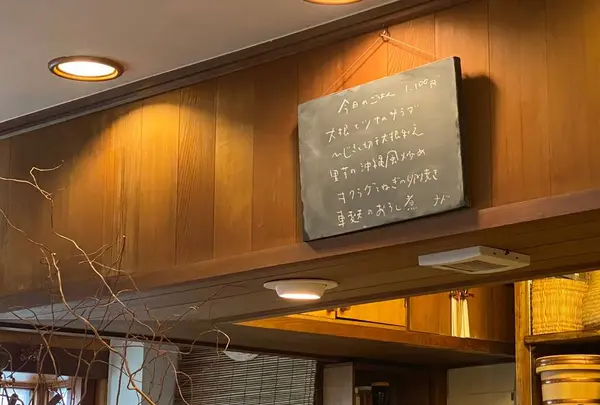 今日のごはん 1,100円
大根とツナのサラダ
ひじきと切干大根和え
里芋の沖縄風炒め
キクラゲとねぎの卵焼き
車麩のおろし煮 など